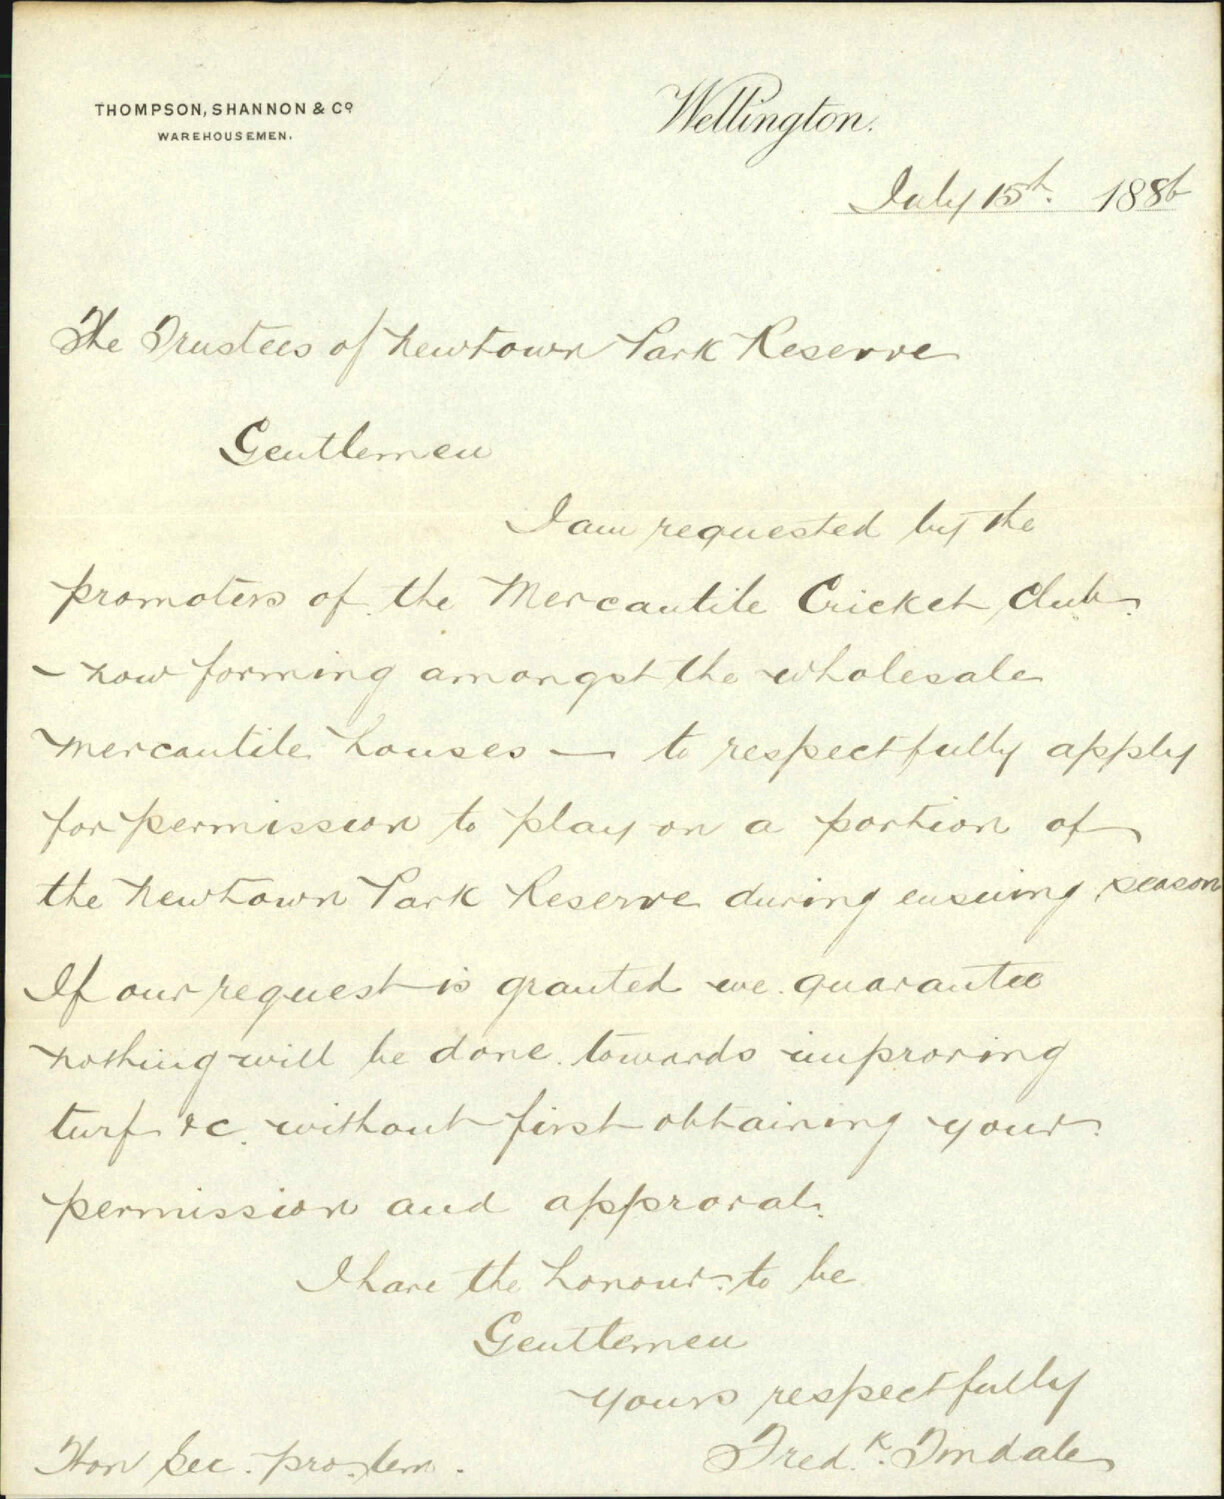 THOMPSON, SHANNON & Co
WAREHOUSEMEN.
Wellington.
July 15th. 1886
The Trustees of Newtown Park Reserve
Gentlemen
I am requested by the
promoters of the Mercantile Cricket Club
- now forming amongst the wholesale
mercantile houses - to respectfully apply
for permission to play on a portion of
the Newtown Park Reserve during ensuing season
If our request is granted we guarantee
nothing will be done towards improving
turf &c. without first obtaining your
permission and approval.
I have the honour to be
Gentlemen
Yours respectfully
Fredk. Tindale
Hon Sec. pro. tem.